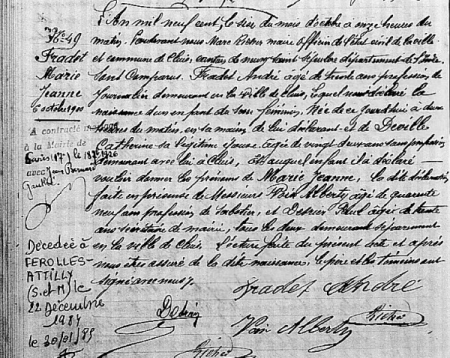 39e 49
Fradet
Marie
Jeanne
6 octobre 1900
A contracté mariage
à la Mairie de
Paris
avec
Décedée à
FEROLLES-
ATTILLY
(S. et M) le
22 Décembre
le 20/01/89
L'An mil neuf cent, le six du mois d'octobre à onze heures du
matin. Pardevant nous maire officier de l'état civil de la ville
et commune de Cluis, canton de département de l'Indre,
sont Comparus. Fradet André âgé de trente ans profession de
Journalier demeurant en la ville de Cluis, lequel nous a déclaré la
naissance d'un enfant de sexe féminin, Née de ce jourd'hui à deux
heures du matin, en sa maison, de lui déclarant et de Deville
Catherine sa légitime épouse âgée de vingt deux ans sans profession
demeurant avec lui à Cluis, auquel enfant il a déclaré
vouloir donner les prénoms de Marie Jeanne, la dite déclaration
faite en présence de Messieurs Albert, âgé de quarante
neuf ans profession de Sabotier, et Paul âgé de trente
ans secrétaire de mairie, tous les deux demeurant séparément
en la ville de Cluis. L'acte faite du présent acte et après
nous être assuré de la dite naissance, le père et les témoins ont
signé avec nous
Fradet André
Albert